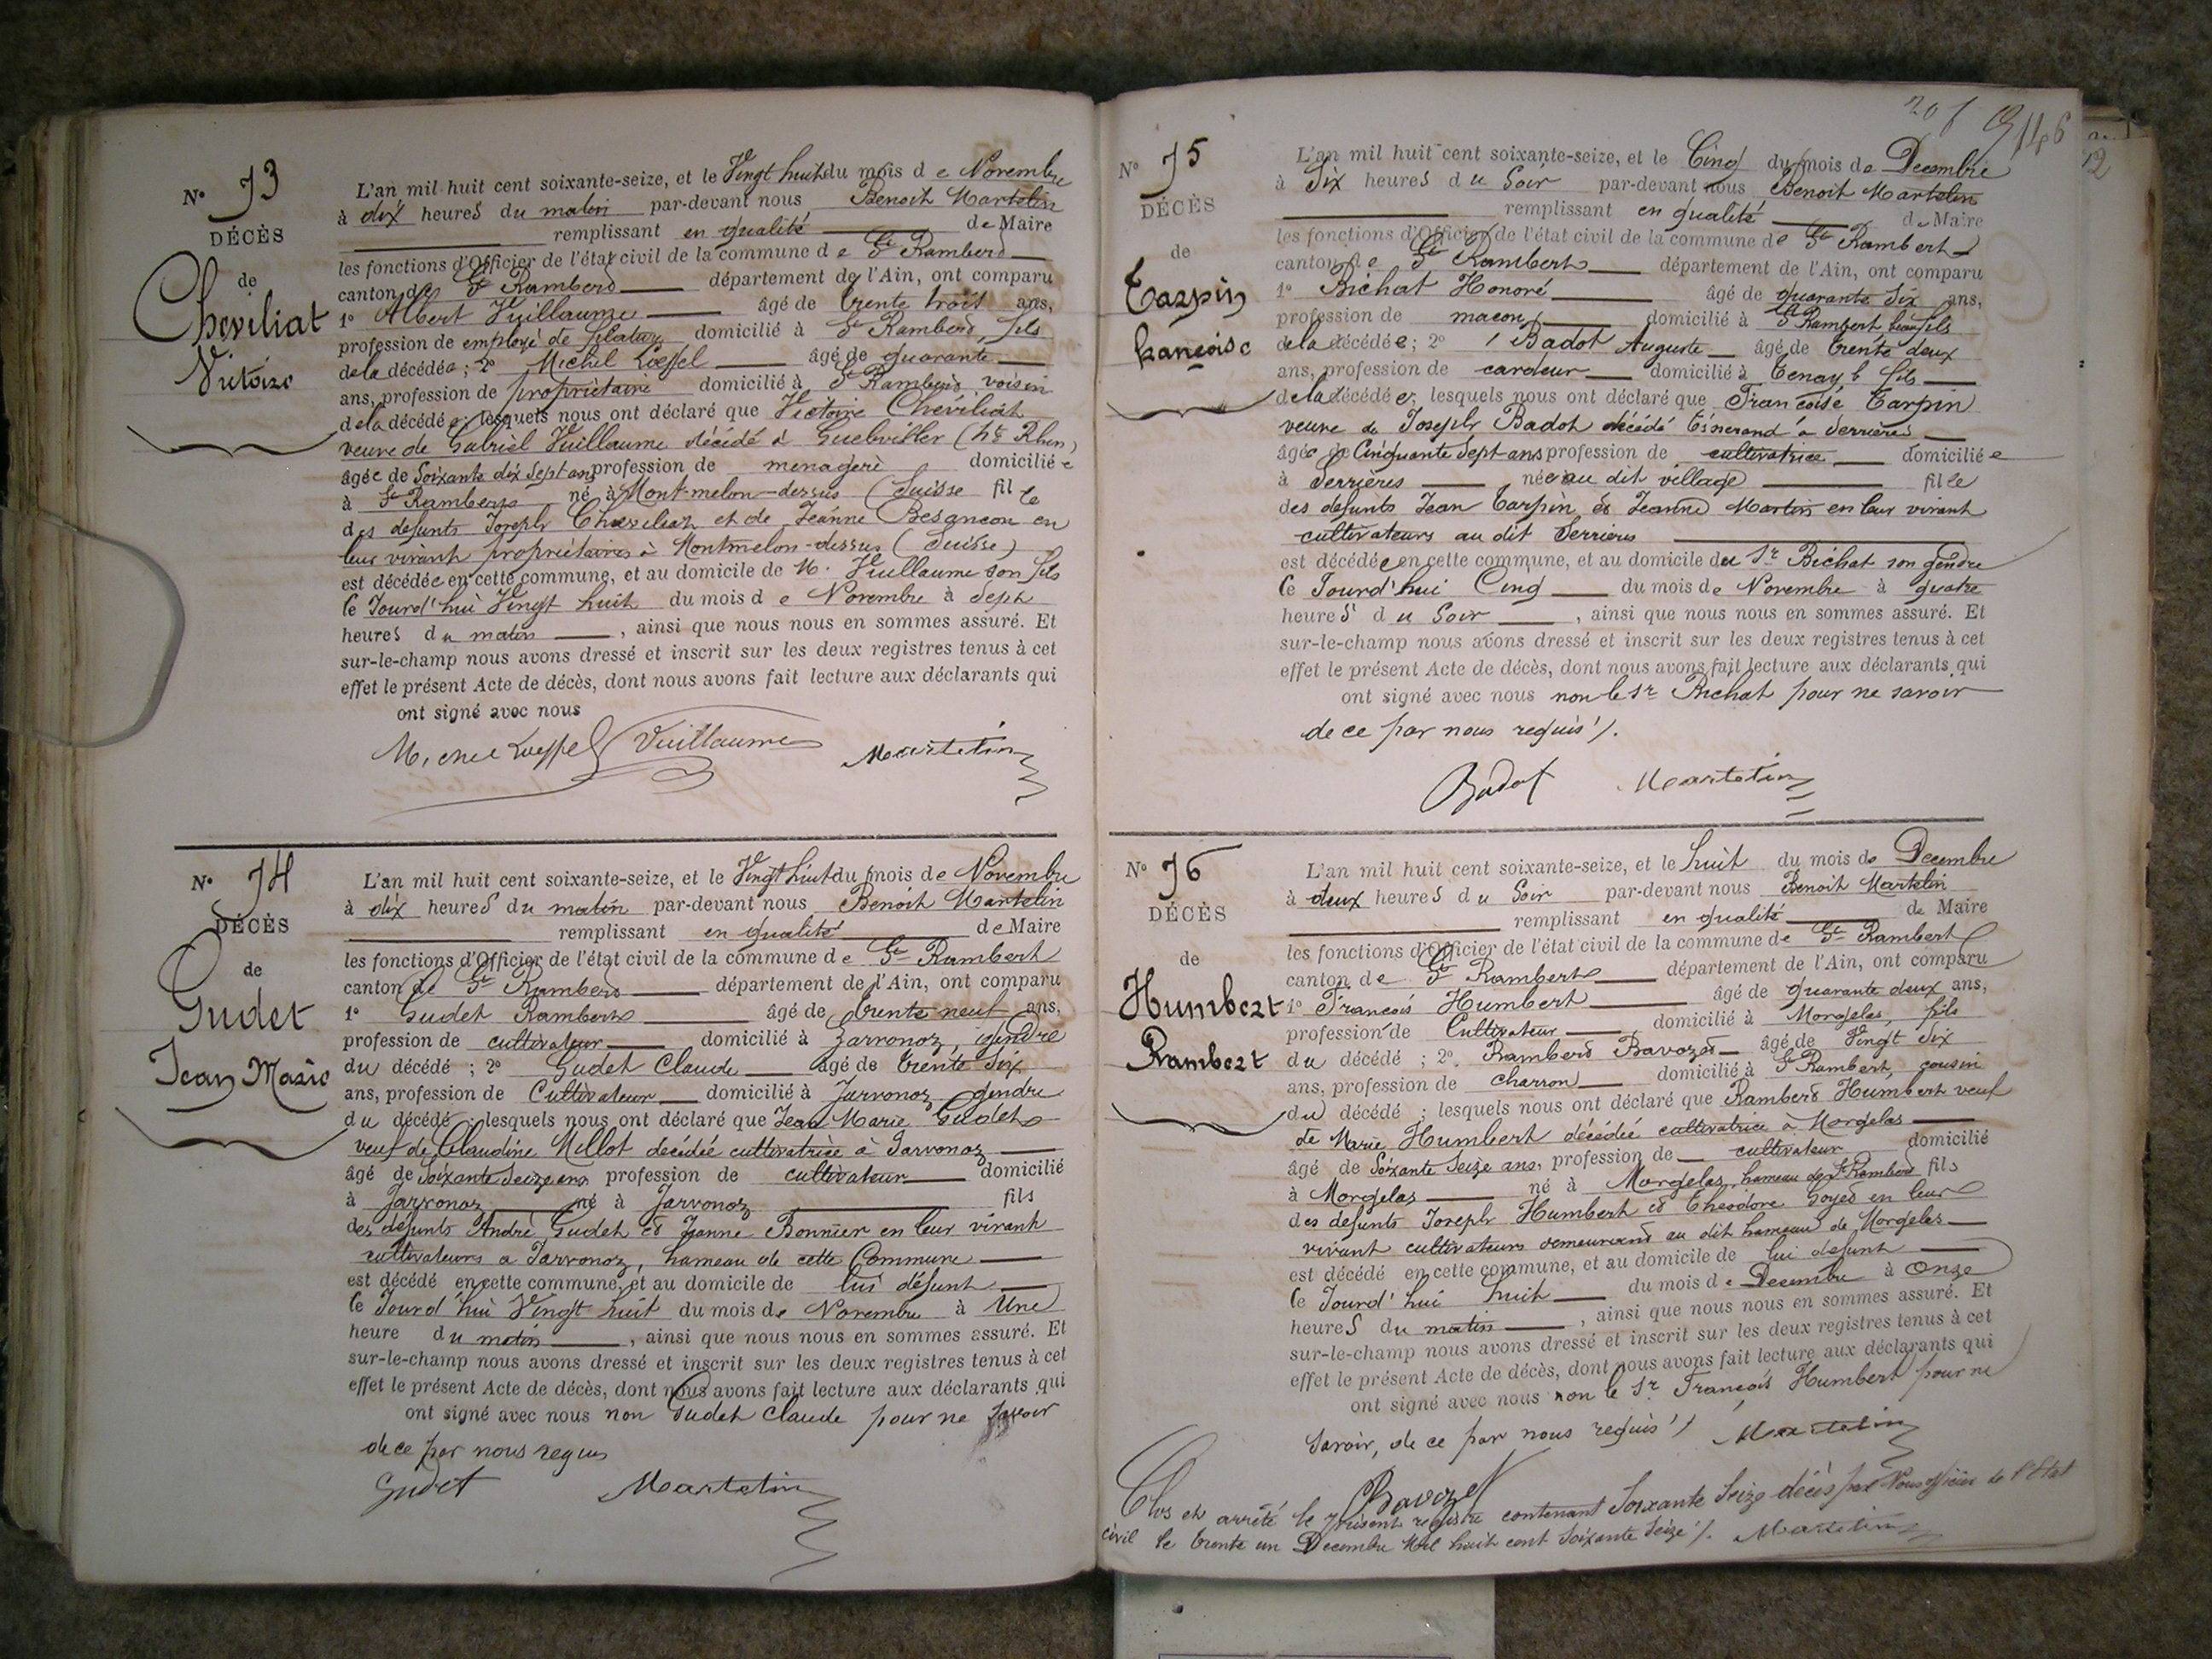 N° 73
DÉCÈS
de
Cheviliat
Victoire
L'an mil huit cent soixante-seize, et le Vingt huit du mois de Novembre
à dix heures du matin par-devant nous Benoit Martelin
remplissant en qualité de Maire
les fonctions d'Officier de l'état civil de la commune de St Rambert
canton de St Rambert département de l'Ain, ont comparu
1° Albert Vuillaume âgé de trente trois ans,
profession de employé de filature domicilié à St Rambert, fils
de la décédée ; 2° Michel Loeffel âgé de quarante
ans, profession de propriétaire domicilié à St Rambert voisin
de la décédée ; lesquels nous ont déclaré que Victoire Cheviliat
veuve de Gabriel Vuillaume décédé à Guebviller (ht Rhin)
âgée de Soixante dix Sept ans profession de menagere domiciliée
à St Rambert né à Mont-melon-dessus (Suisse fille
des defunts Joseph Cheviliat et de Jeanne Besancon en
leur vivant propriétaires à Montmelon-dessus (Suisse)
est décédée en cette commune, et au domicile de M. Vuillaume son fils
le Jourd'hui Vingt huit du mois de Novembre à Sept
heures du matin , ainsi que nous nous en sommes assuré. Et
sur-le-champ nous avons dressé et inscrit sur les deux registres tenus à cet
effet le présent Acte de décès, dont nous avons fait lecture aux déclarants qui
ont signé avec nous
Michel Loeffel Vuillaume Martelin
N° 74
DÉCÈS
de
Gudet
Jean Marie
L'an mil huit cent soixante-seize, et le Vingt huit du mois de Novembre
à dix heures du matin par-devant nous Benoit Martelin
remplissant en qualité de Maire
les fonctions d'Officier de l'état civil de la commune de St Rambert
canton de St Rambert département de l'Ain, ont comparu
1° Gudet Rambert âgé de trente neuf ans,
profession de cultivateur domicilié à Javronoz, gendre
du décédé ; 2° Gudet Claude âgé de trente Six
ans, profession de Cultivateur domicilié à Javronoz gendre
du décédé ; lesquels nous ont déclaré que Jean Marie Gudet
veuf de Claudine Millot decédée cultivatrice à Javronoz
âgé de Soixante Seize ans profession de cultivateur domicilié
à Javronoz né à Javronoz fils
des defunts André Gudet et Jeanne Bonnier en leur vivant
cultivateurs a Javronoz, hameau de cette Commune
est décédé en cette commune, et au domicile de lui défunt
le Jourd'hui Vingt huit du mois de Novembre à Une
heure du matin , ainsi que nous nous en sommes assuré. Et
sur-le-champ nous avons dressé et inscrit sur les deux registres tenus à cet
effet le présent Acte de décès, dont nous avons fait lecture aux déclarants qui
ont signé avec nous non Gudet Claude pour ne savoir
de ce par nous requis
Gudet Martelin
N° 75
DÉCÈS
de
Tarpin
francoise
L'an mil huit cent soixante-seize, et le Cinq du mois de Decembre
à Six heures du Soir par-devant nous Benoit Martelin
remplissant en qualité de Maire
les fonctions d'Officier de l'état civil de la commune de St Rambert
canton de St Rambert département de l'Ain, ont comparu
1° Bichat Honoré âgé de quarante Six ans,
profession de macon domicilié à St Rambert beau fils
de la décédée ; 2° Badot Auguste âgé de trente deux
ans, profession de cardeur domicilié à Tenay fils
de la décédée, lesquels nous ont déclaré que Francoise Tarpin
veuve de Joseph Badot décédé Tisserand à Serrières
âgée de Cinquante Sept ans profession de cultivatrice domiciliée
à Serrières née au dit village fille
des defunts Jean Tarpin et Jeanne Martin en leur vivant
cultivateurs au dit Serrieres
est décédée en cette commune, et au domicile du Sr Bichat son gendre
le Jourd'hui Cinq du mois de Novembre à quatre
heures du Soir , ainsi que nous nous en sommes assuré. Et
sur-le-champ nous avons dressé et inscrit sur les deux registres tenus à cet
effet le présent Acte de décès, dont nous avons fait lecture aux déclarants qui
ont signé avec nous non le Sr Bichat pour ne savoir
de ce par nous requis /.
Badot Martelin
N° 76
DÉCÈS
de
Humbert
Rambert
L'an mil huit cent soixante-seize, et le huit du mois de Decembre
à deux heures du Soir par-devant nous Benoit Martelin
remplissant en qualité de Maire
les fonctions d'Officier de l'état civil de la commune de St Rambert
canton de St Rambert département de l'Ain, ont comparu
1° Francois Humbert âgé de quarante deux ans,
profession de Cultivateur domicilié à Morgelas, fils
du décédé ; 2° Rambert Bavozet âgé de Vingt Six
ans, profession de charron domicilié à St Rambert, cousin
du décédé ; lesquels nous ont déclaré que Rambert Humbert veuf
de Marie Humbert décédée cultivatrice à Morgelas
âgé de Soixante Seize ans, profession de cultivateur domicilié
à Morgelas né à Morgelas, hameau de St Rambert fils
des defunts Joseph Humbert et Theodore Goyet en leur
vivant cultivateurs demeurant au dit hameau de Morgelas
est décédé en cette commune, et au domicile de lui defunt
le Jourd'hui huit du mois de Decembre à Onze
heures du matin , ainsi que nous nous en sommes assuré. Et
sur-le-champ nous avons dressé et inscrit sur les deux registres tenus à cet
effet le présent Acte de décès, dont nous avons fait lecture aux déclarants qui
ont signé avec nous non le Sr Francois Humbert pour ne
savoir, de ce par nous requis / Martelin
Bavozet
Clos et arrêté le présent registre contenant Soixante Seize décès par Nous officier de l'Etat
civil le trente un Decembre Mil huit cent Soixante Seize /. Martelin